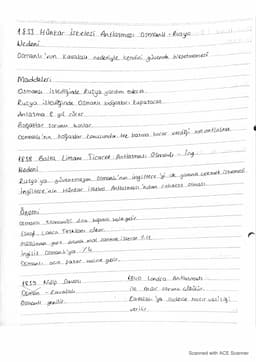 1833 Hünkar İskelesi Antlaşması Osmanlı - Rusya
Nedeni
Osmanlı'nın Kavalalı nedeniyle kendini güvende hissetmemesi
Maddeleri
Osmanlı istediğinde Rusya yardım edecek.
Rusya istediğinde Osmanlı boğazları kapatacak.
Antlaşma 8 yıl sürer.
Boğazlar sorunu başlar.
Osmanlı'nın boğazlar konusunda tek başına karar verdiği son antlaşma
1838 Balta Limanı Ticaret Antlaşması Osmanlı - İng.
Nedeni
Rusya'ya güvenmeyen Osmanlı'nın İngiltere'yi de yanına çekmek istemesi
İngiltere'nin Hünkar İskelesi Antlaşması'ndan rahatsız olması
Önemi
Osmanlı ekonomisi dışa bağımlı hale gelir.
Esnaf Lonca Teşkilatı
Osmanlı açık pazar haline gelir.
1839 Nizip Savaşı
Osmanlı - Kavalalı
Osmanlı yenilir.
1840 Londra Antlaşması
ile Mısır sorunu çözülür.
Kavalalı'ya sadece Mısır valiliği
verilir.
Scanned with ACE Scanner